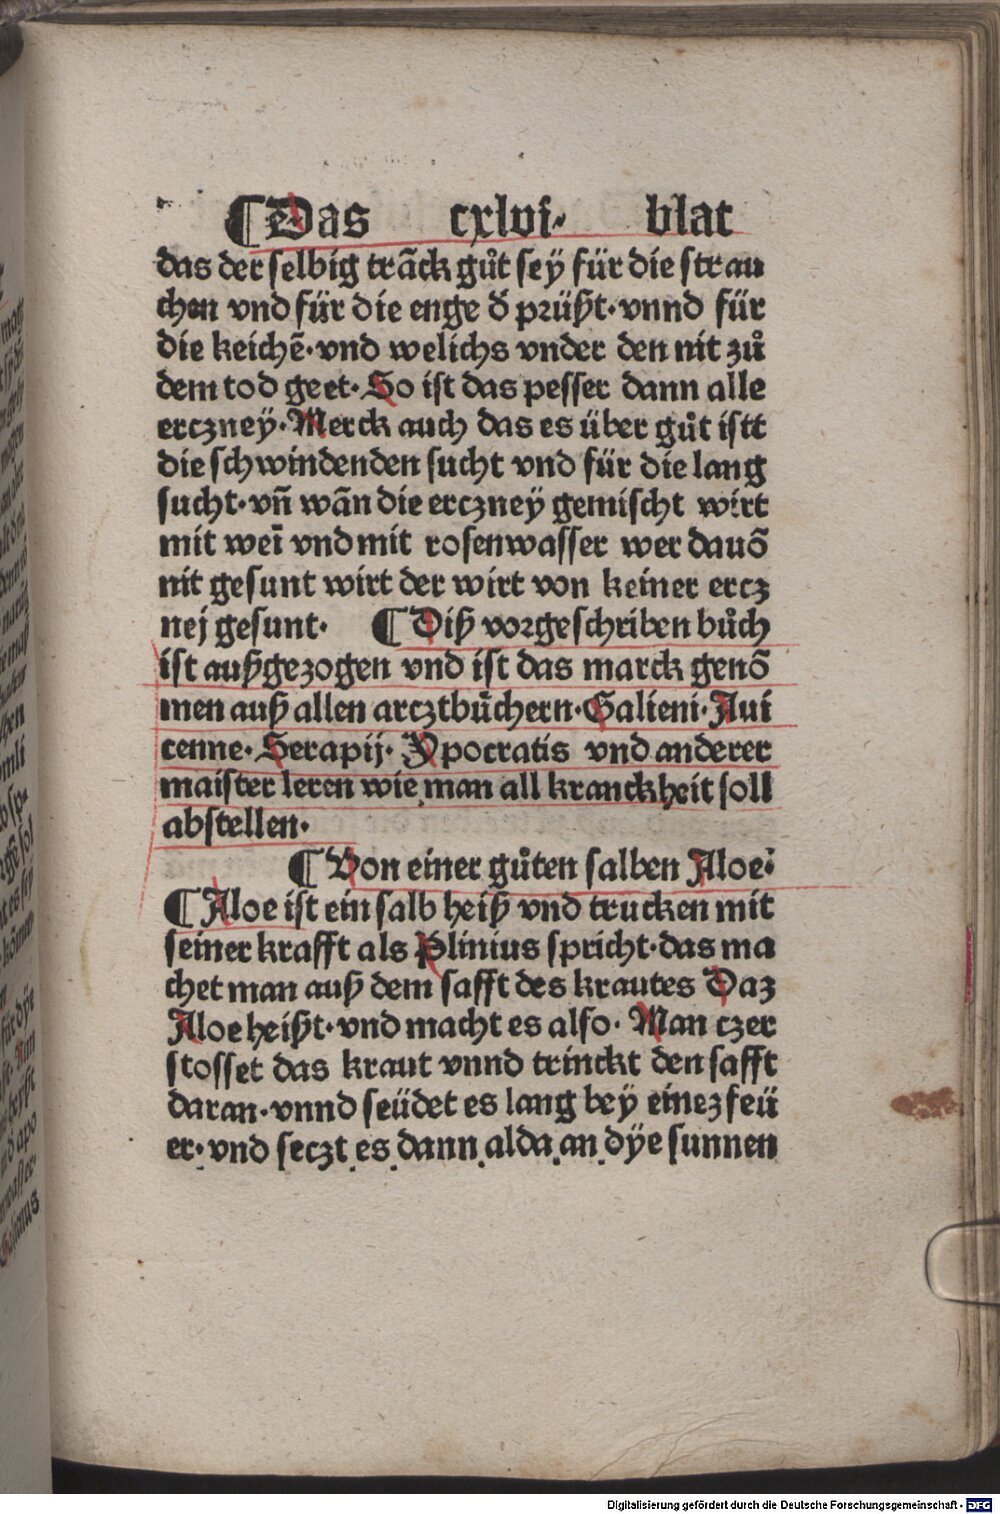 ¶ Das cxlvi· blat
das der selbig trãck gůt sey für die strau
chen vnd für die enge d̕ prüßt·vnnd für
die keichẽ·vnd welichs vnder den nit zů
dem tod geet·So ist das pesser dann alle
erczney·Merck auch das es über gůt istt
die schwindenden sucht vnd für die lang
sucht·vñ wãn die erczney gemischt wirt
mit weī vnd mit rosenwasser wer dauõ
nit gesunt wirt der wirt von keiner ercz
nej gesunt· ¶ Diß vorgeschriben bůch
ist außgezogen vnd ist das marck genõ
men auß allen arcztbüchern·Galieni·Aui
cenne·Serapij·Ypocratis vnd anderer
maister leren wie man all kranckheit soll
abstellen·
¶ Von einer gůten salben Aloe·
¶ Aloe ist ein salb heiß vnd trucken mit
seiner krafft als Plinius spricht·das ma
chet man auß dem safft des krautes Daz
Aloe heißt·vnd macht es also·Man czer
stosset das kraut vnnd trinckt den safft
daran·vnnd seüdet es lang bey einez feü
er·vnd seczt es dann alda an dye sunnen
Digitalisierung gefördert durch die Deutsche Forschungsgemeinschaft - DFG